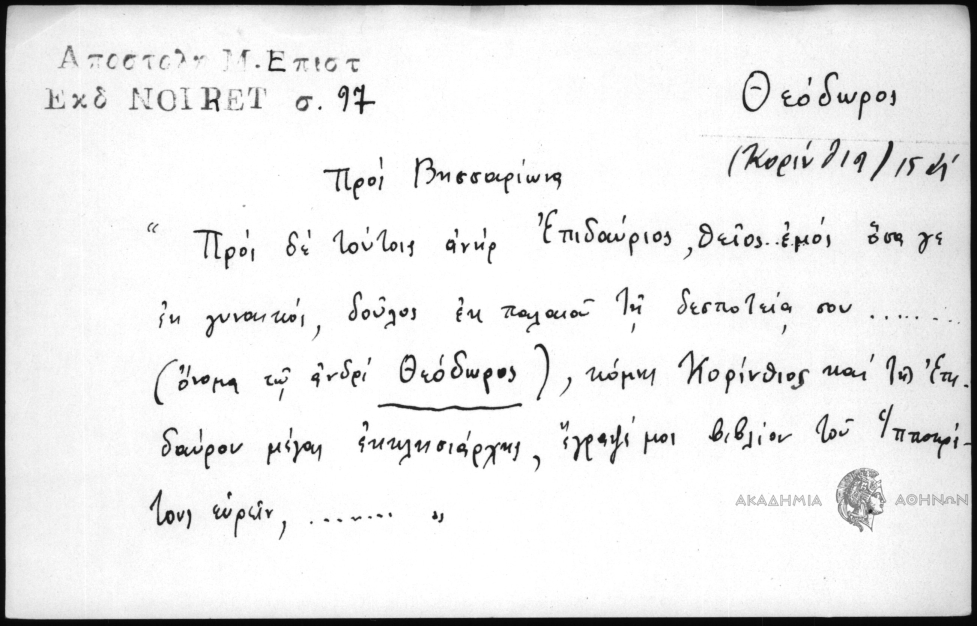 Αποστολη Μ. Επιστ
Εκδ NOIRET σ. 97
Θεόδωρος
(Κορίνθια) 15
Πρὸς Βησσαρίωνα
“ Πρὸς δέ τούτοις ἀνήρ Ἐπιδαύριος, θεῖος.. ἐμός ὅσα γε
ἐκ γυναικός, δοῦλος ἐκ παλαιοῦ τῇ δεσποτείᾳ σου ........
(ὄνομα τῷ ἀνδρί Θεόδωρος), κόμης Κορίνθιος καί τῆς Ἐπι-
δαύρου μέγας ἐκκλησιάρχης, ἔγραψέ μοι βιβλίον τοῦ Ἱπποκρά-
τους εὑρεῖν, ........ „
ΑΚΑΔΗΜΙΑ ΑΘΗΝΩΝ